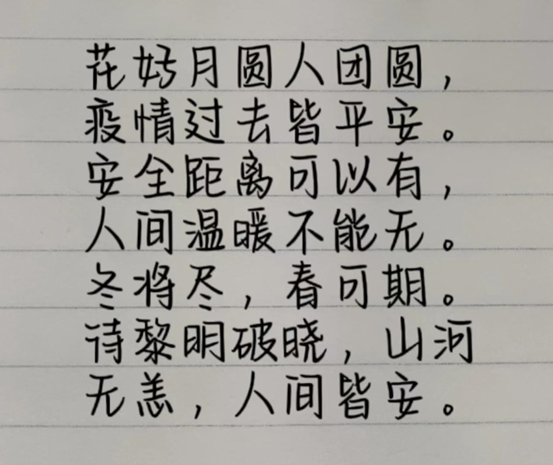 花好月圆人团圆，
疫情过去皆平安。
安全距离可以有，
人间温暖不能无。
冬将尽，春可期。
待黎明破晓，山河
无恙，人间皆安。